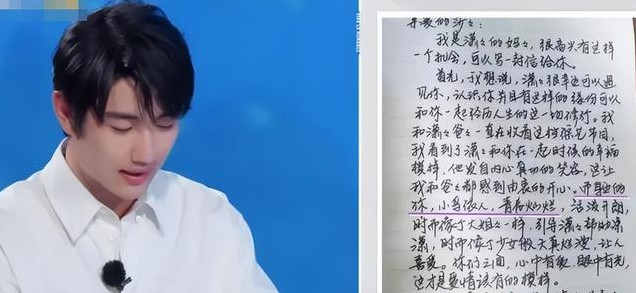 亲爱的沙沙:
我是潇々的妈々,很高兴有这样
一个机会,可以写一封信给你。
首先,我想说,潇々很幸运可以遇
见你,认识你并且有这样的缘份可以
和你一起经历人生的这一切修行。我
和潇々爸々一直在收看这档综艺节目,
我看到了潇々和你在一起时候的幸福
模样,他发自内心真切的笑容,这让
我和爸々都感到由衷的开心。而身边的
你,小鸟依人,青春灿烂,活泼开朗,
时而像个大姐々一样,引导潇々帮助潇
潇,时而像个少女般天真烂漫,让人
喜爱。你们之间,心中有爱,眼中有光,
这才是爱情该有的模样。